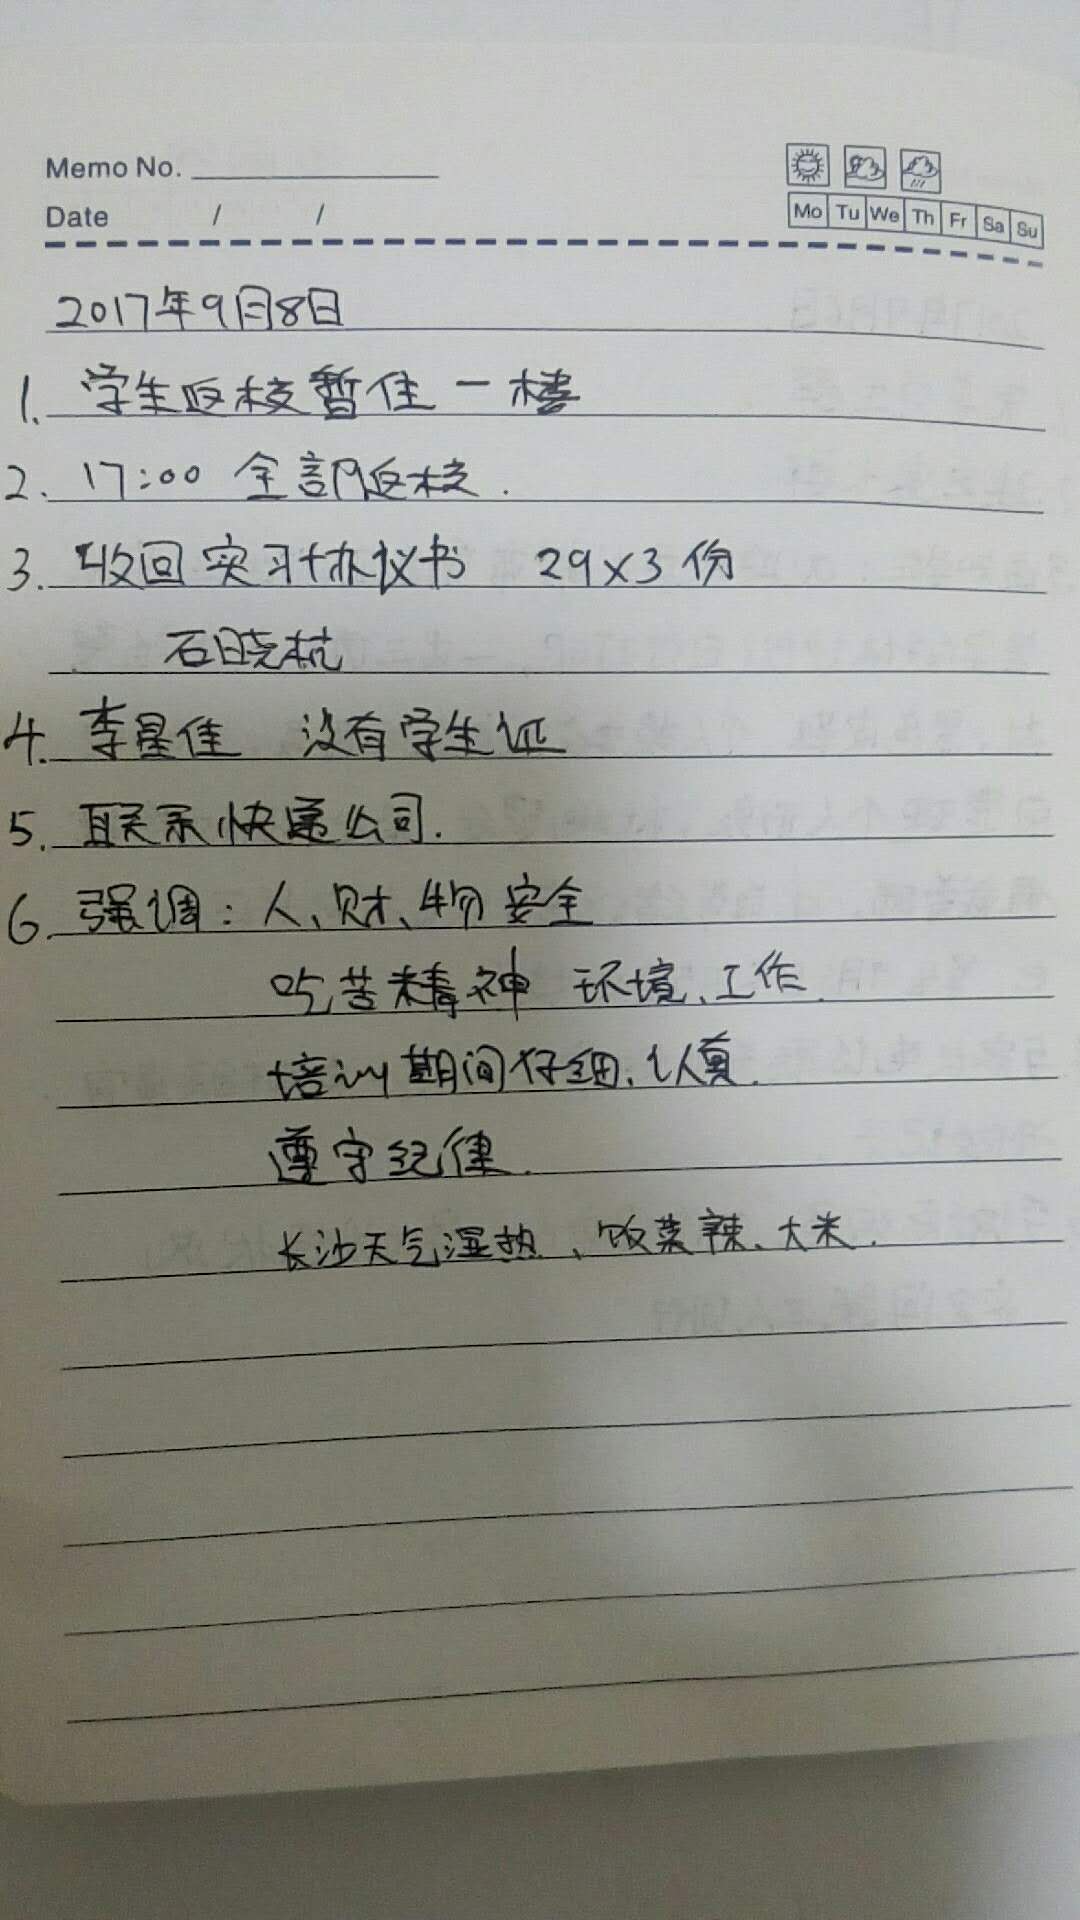 Memo No.
Date / /
Mo Tu We Th Fr Sa Su
2017年9月8日
1. 学生返校暂住一楼
2. 17:00 全部返校.
3. 收回实习协议书 29×3份
石晓杭
4. 李星佳 没有学生证
5. 联系快递公司.
6. 强调：人、财、物安全
吃苦精神 环境、工作.
培训期间仔细、认真.
遵守纪律.
长沙天气湿热、饭菜辣、大米.